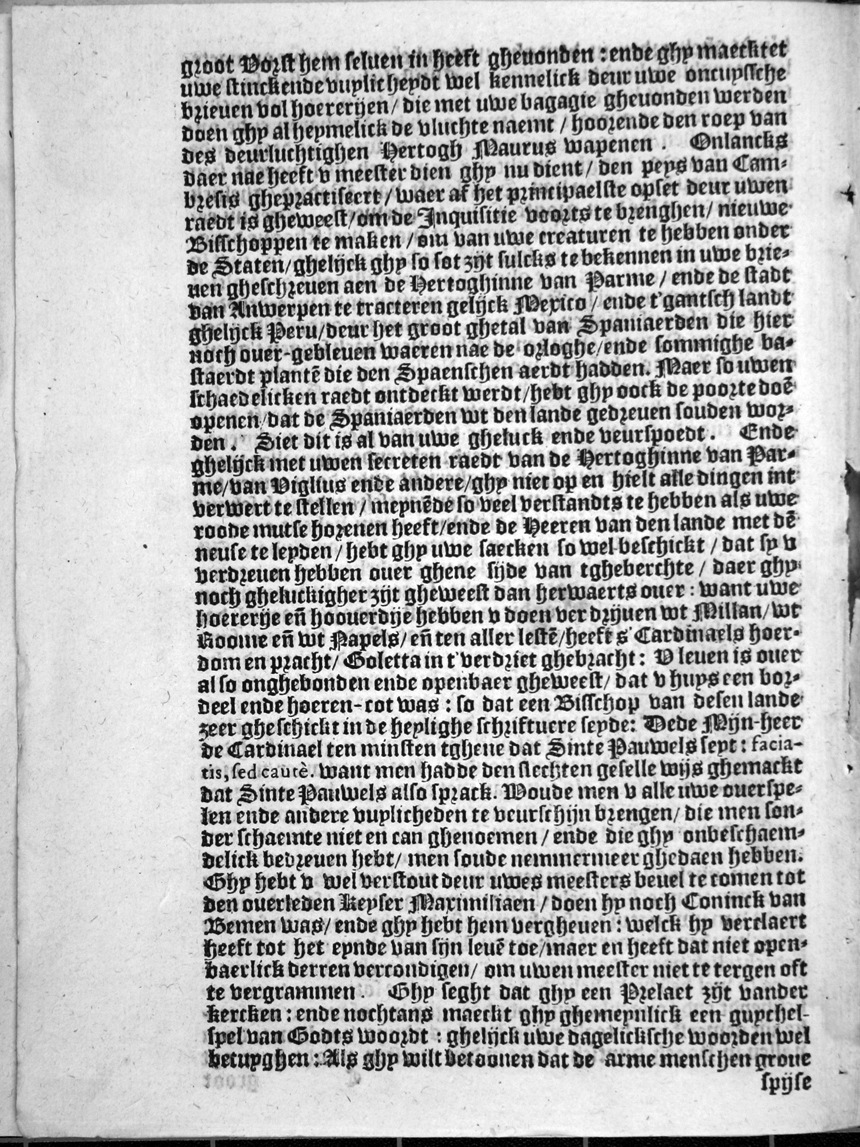 groot Vorst hem seluen in heeft gheuonden : ende ghy maecktet
uwe stinckende vuylicheydt wel kennelick deur uwe oncuyssche
brieuen vol hoererijen / die met uwe bagagie gheuonden werden
doen ghy al heymelick de vluchte naemt / hoorende den roep van
des deurluchtighen Hertogh Maurus wapenen . Onlancks
daer nae heeft v meester dien ghy nu dient / den peys van Cam-
bresis ghepractiseert / waer af het principaelste opset deur uwen
raedt is gheweest / om de Inquisitie voorts te brenghen / nieuwe
Bisschoppen te maken / om van uwe creaturen te hebben onder
de Staten / ghelijck ghy so sot zijt sulcks te bekennen in uwe brie-
uen gheschreuen aen de Hertoghinne van Parme / ende de stadt
van Anwerpen te tracteren gelijck Mexico / ende t'gantsch landt
ghelijck Peru / deur het groot ghetal van Spaniaerden die hier
noch ouer-gebleuen waeren nae de orloghe / ende sommighe ba-
staerdt plantē die den Spaenschen aerdt hadden. Maer so uwen
schaedelicken raedt ontdeckt werdt / hebt ghy oock de poorte doē
openen / dat de Spaniaerden wt den lande gedreuen souden wor-
den . Siet dit is al van uwe gheluck ende veurspoedt . Ende
ghelijck met uwen secreten raedt van de Hertoghinne van Par-
me / van Viglius ende andere / ghy niet op en hielt alle dingen int
verwert te stellen / meynēde so veel verstandts te hebben als uwe
roode mutse horenen heeft / ende de Heeren van den lande met dē
neuse te leyden / hebt ghy uwe saecken so wel beschickt / dat sy v
verdreuen hebben ouer ghene sijde van tgheberchte / daer ghy
noch gheluckigher zijt gheweest dan herwaerts ouer : want uwe
hoererije eñ hoouerdije hebben v doen verdrijuen wt Millan / wt
Roome eñ wt Napels / eñ ten aller lestē / heeft s'Cardinaels hoer-
dom en pracht / Goletta in t'verdriet ghebracht : V leuen is ouer
al so onghebonden ende openbaer gheweest / dat v huys een bor-
deel ende hoeren-cot was : so dat een Bisschop van desen lande
zeer gheschickt in de heylighe schriftuere seyde: Dede Mijn-heer
de Cardinael ten minsten tghene dat Sinte Pauwels seyt : facia-
tis, sed cautè. want men hadde den slechten geselle wijs ghemackt
dat Sinte Pauwels also sprack. Woude men v alle uwe ouerspe-
len ende andere vuylicheden te veurschijn brengen / die men son-
der schaemte niet en can ghenoemen / ende die ghy onbeschaem-
delick bedreuen hebt / men soude nemmermeer ghedaen hebben.
Ghy hebt v wel verstout deur uwes meesters beuel te comen tot
den ouerleden Keyser Maximiliaen / doen hy noch Coninck van
Bemen was / ende ghy hebt hem vergheuen : welck hy verclaert
heeft tot het eynde van sijn leuē toe / maer en heeft dat niet open-
baerlick derren vercondigen / om uwen meester niet te tergen oft
te vergrammen . Ghy seght dat ghy een Prelaet zijt vander
kercken : ende nochtans maeckt ghy ghemeynlick een guychel-
spel van Godts woordt : ghelijck uwe dagelicksche woorden wel
betuyghen : Als ghy wilt betoonen dat de arme menschen groue
spijse